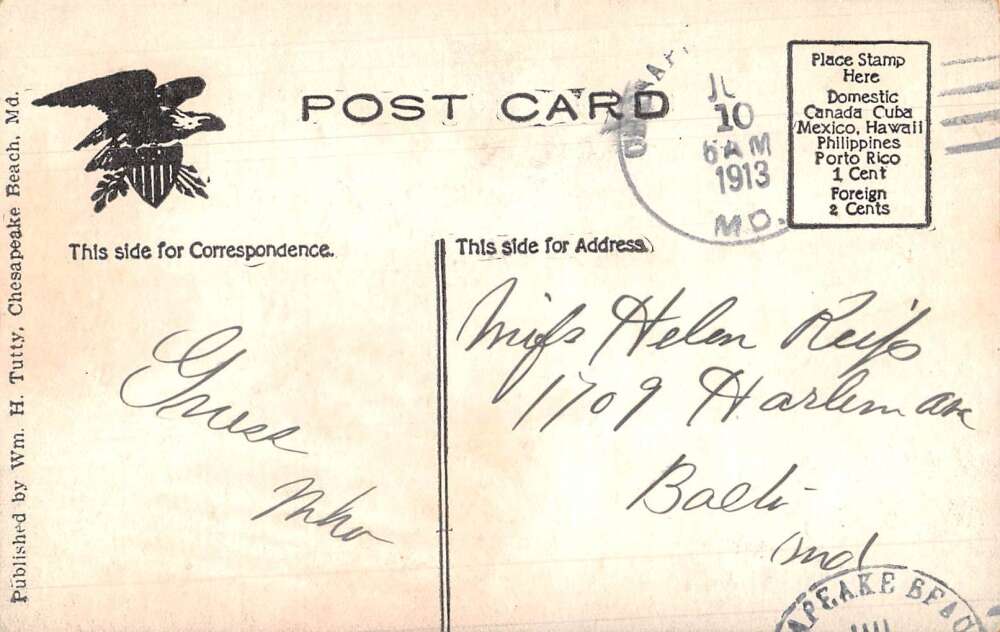 POST CARD
JU
10
6 AM
1913
MD.
Place Stamp
Here
Domestic
Canada Cuba
Mexico, Hawaii
Philippines
Porto Rico
1 Cent
Foreign
2 Cents
Published by Wm. H. Tutty, Chesapeake Beach, Md.
This side for Correspondence.
Guess
Who
This side for Address.
Miss Helen Reiss
1709 Harlem Ave
Balti
Md
APEAKE BEAC